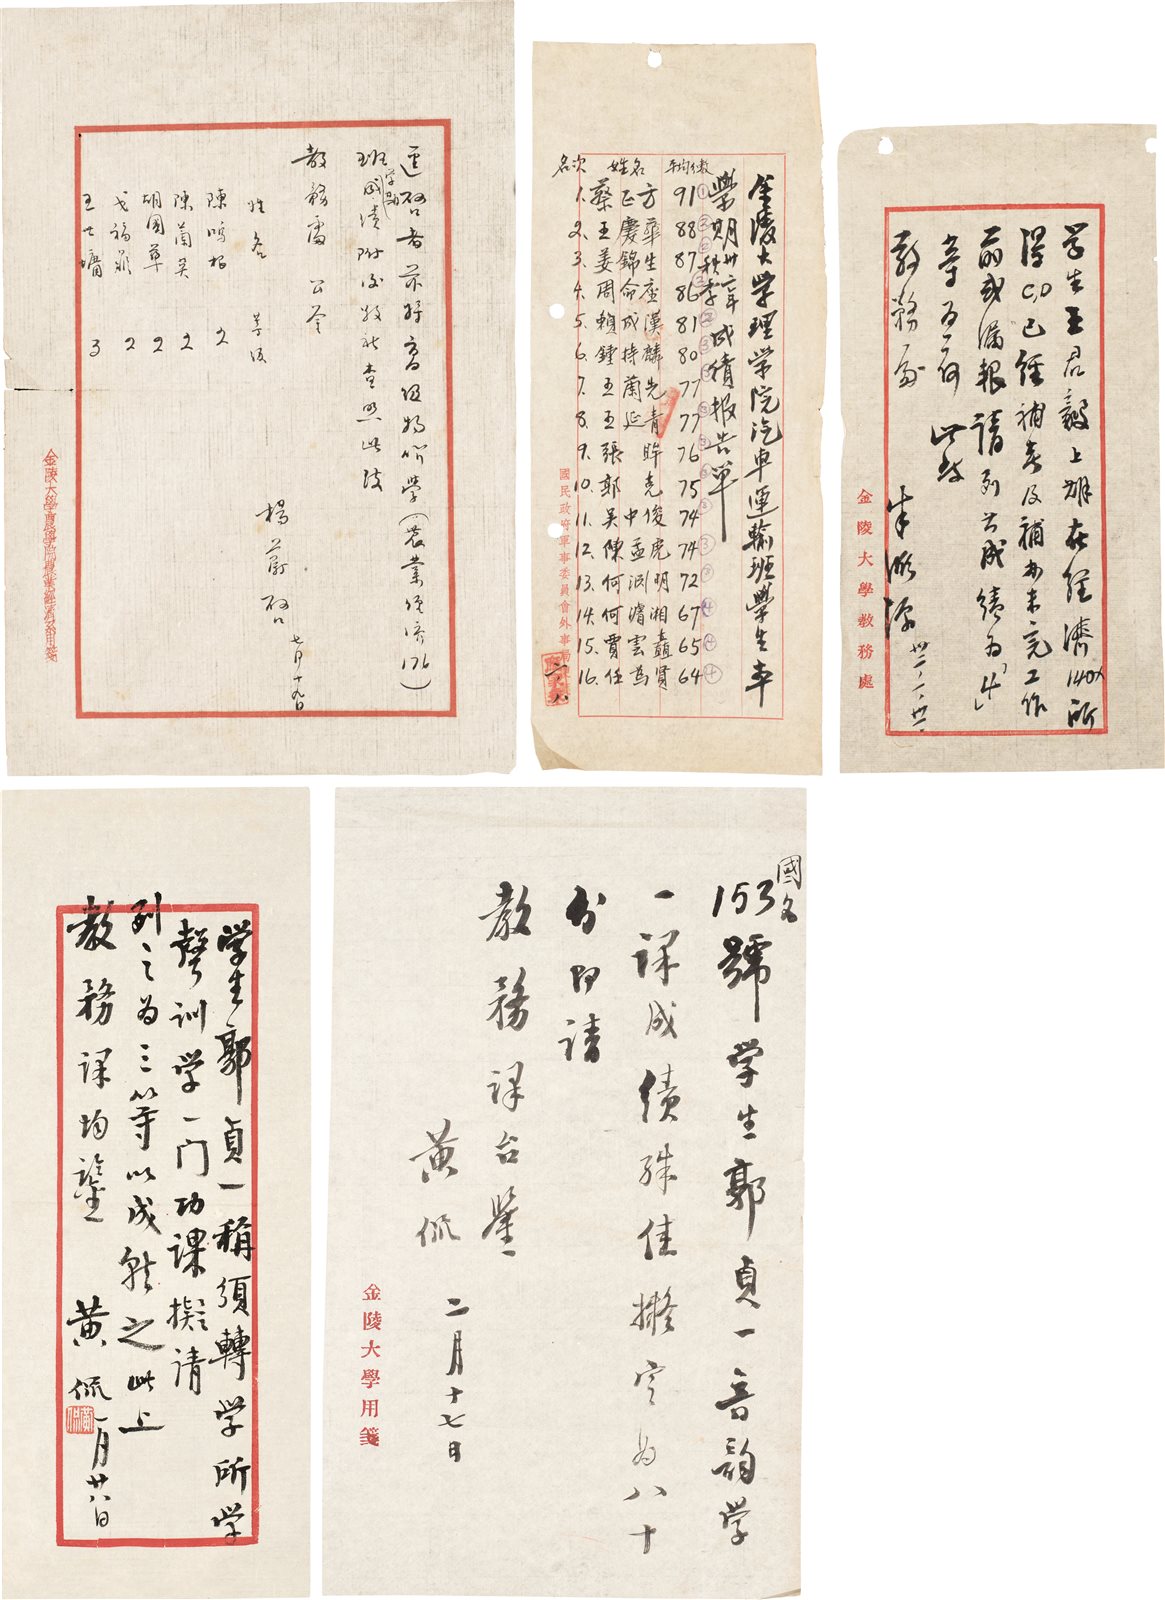 逕啓者茲將高級物價學(農業經濟176)
班学期成績附後敬祈查照此致
教務處 公鑒
姓名 等級
陳鳴梧 2
陳蘭英 2
胡國華 2
戈福鼎 2
王士墉 3
楊蔚啓 七月十九日
金陵大學農學院農業經濟系用箋
金陵大学理学院汽車運輸班學生本
學期卅一年秋季成績报告單
名次 姓名 平均分數
1. 蔡正方 91
2. 王慶華 88
3. 姜錦生 87
4. 周命座 86
5. 賴成漢 81
6. 鍾持麟 80
7. 王蘭先 77
8. 王延青 77
9. 張眸 76
10. 郭克 75
11. 吳中俊 74
12. 陳孟虎 74
13. 何明 72
14. 何濬湘 67
15. 賈雲矗 65
16. 任為賢 64
國民政府軍事委員會外事局
学生王君毅上期在經濟140x所
得C,D已經補考及補办未完工作
前或漏報請列其成績为「4」
等为荷 此致
教務處
朱 源 卅二、一、卅一
金陵大學教務處
学生郭貞一稱須轉学所学
聲訓学一门功課擬請
列之为三等以成就之此上
教務課均鑒 黄侃 一月廿八日
國文
153號学生郭貞一音韵学
一課成績殊佳擬定为八十
分即請
教務課台鑒
黄侃 二月十七日
金陵大學用箋